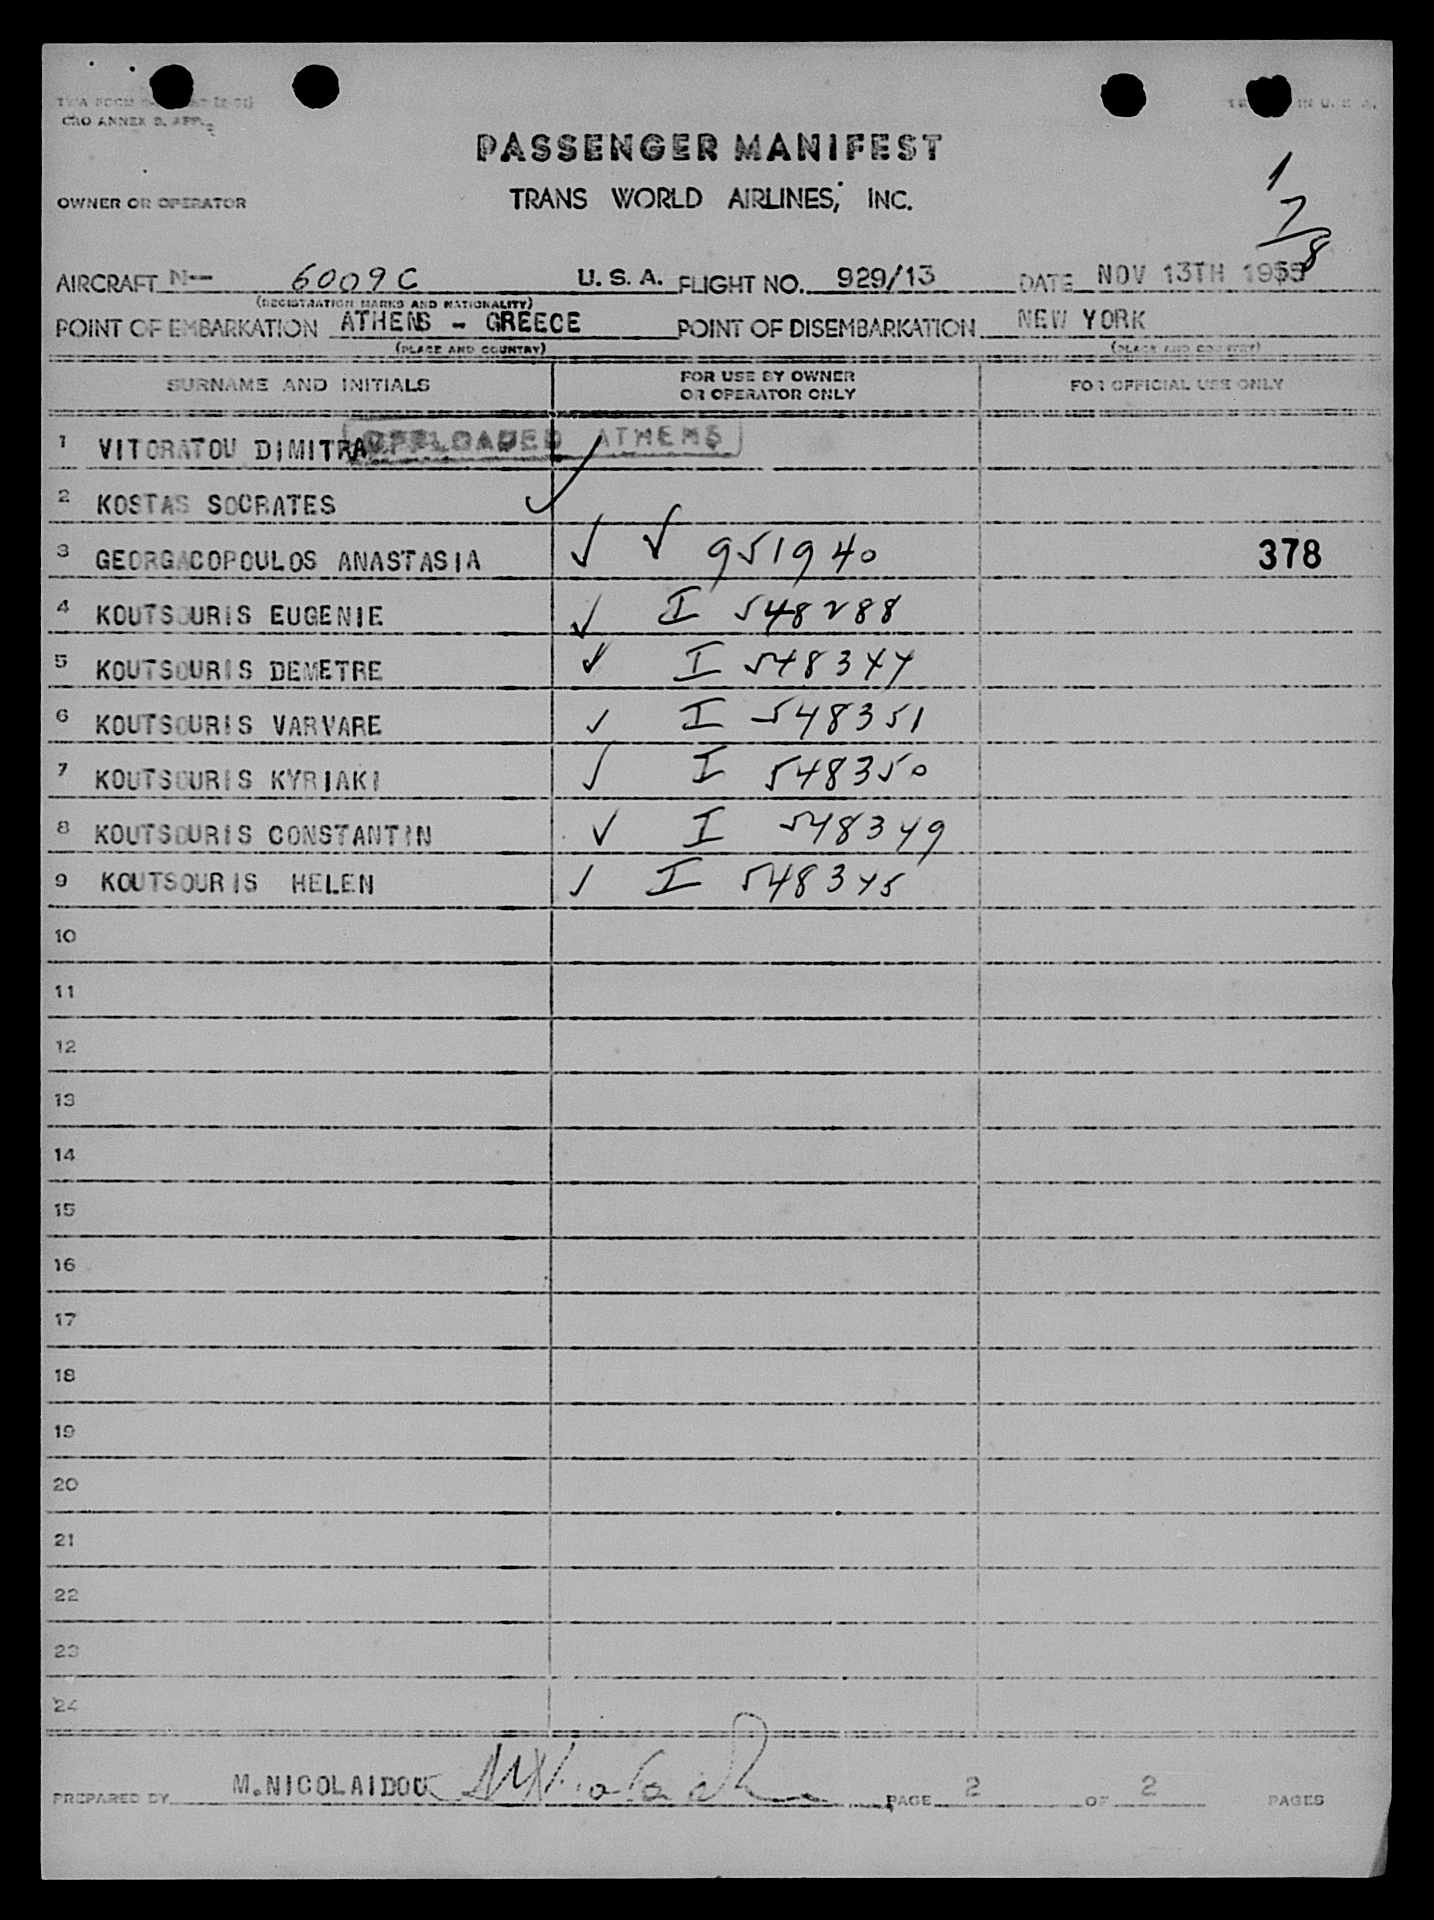 CAO ANNEX 9, APP.
PASSENGER MANIFEST
OWNER OR OPERATOR
TRANS WORLD AIRLINES, INC.
1
7
8
AIRCRAFT N-- 6009C U. S. A. FLIGHT NO. 929/13 DATE NOV 13TH 1955
(REGISTRATION MARKS AND NATIONALITY)
POINT OF EMBARKATION ATHENS - GREECE POINT OF DISEMBARKATION NEW YORK
(PLACE AND COUNTRY) (PLACE AND COUNTRY)
SURNAME AND INITIALS FOR USE BY OWNER OR OPERATOR ONLY FOR OFFICIAL USE ONLY
1 VITORATOU DIMITRA OFFLOADED ATHENS
2 KOSTAS SOCRATES ✓
3 GEORGACOPOULOS ANASTASIA ✓ ✓ 951940 378
4 KOUTSOURIS EUGENIE ✓ I 548288
5 KOUTSOURIS DEMETRE ✓ I 548344
6 KOUTSOURIS VARVARE ✓ I 548351
7 KOUTSOURIS KYRIAKI ✓ I 548350
8 KOUTSOURIS CONSTANTIN ✓ I 548349
9 KOUTSOURIS HELEN ✓ I 548345
10
11
12
13
14
15
16
17
18
19
20
21
22
23
24
PREPARED BY M.NICOLAIDOU PAGE 2 OF 2 PAGES